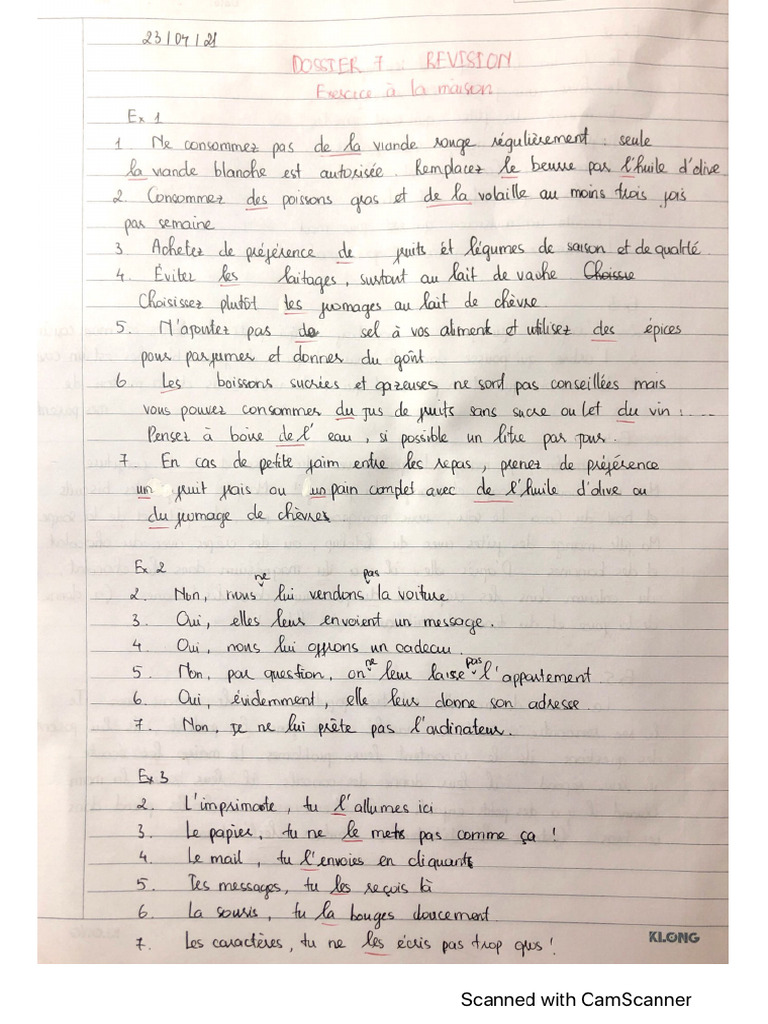 23/04/21
DOSSIER 7 : REVISION
Exercice à la maison
Ex 1
1. Ne consommez pas de la viande rouge régulièrement : seule
la viande blanche est autorisée. Remplacez le beurre par l'huile d'olive
2. Consommez des poissons gras et de la volaille au moins trois fois
par semaine
3. Achetez de préférence de fruits et légumes de saison et de qualité
4. Évitez les laitages, surtout au lait de vache Choisse
Choisissez plutôt les fromages au lait de chèvre.
5. N'ajoutez pas de sel à vos aliments et utilisez des épices
pour parfumer et donner du goût.
6. Les boissons sucrées et gazeuses ne sont pas conseillées mais
vous pouvez consommer du jus de fruits sans sucre ou/et du vin : ....
Pensez à boire de l' eau, si possible un litre par jour.
7. En cas de petite faim entre les repas, prenez de préférence
un fruit frais ou un pain complet avec de l'huile d'olive ou
du fromage de chèvre
Ex 2
2. Non, nous ne lui vendons pas la voiture
3. Oui, elles leur envoient un message.
4. Oui, nous lui offrons un cadeau.
5. Non, pas question, on ne leur laisse pas l'appartement.
6. Oui, évidemment, elle leur donne son adresse.
7. Non, je ne lui prête pas l'ordinateur.
Ex 3
2. L'imprimante, tu l'allumes ici.
3. Le papier, tu ne le mets pas comme ça !
4. Le mail, tu l'envoies en cliquant
5. Tes messages, tu les reçois là
6. La souris, tu la bouges doucement.
7. Les caractères, tu ne les écris pas trop gros !
KLONG
Scanned with CamScanner